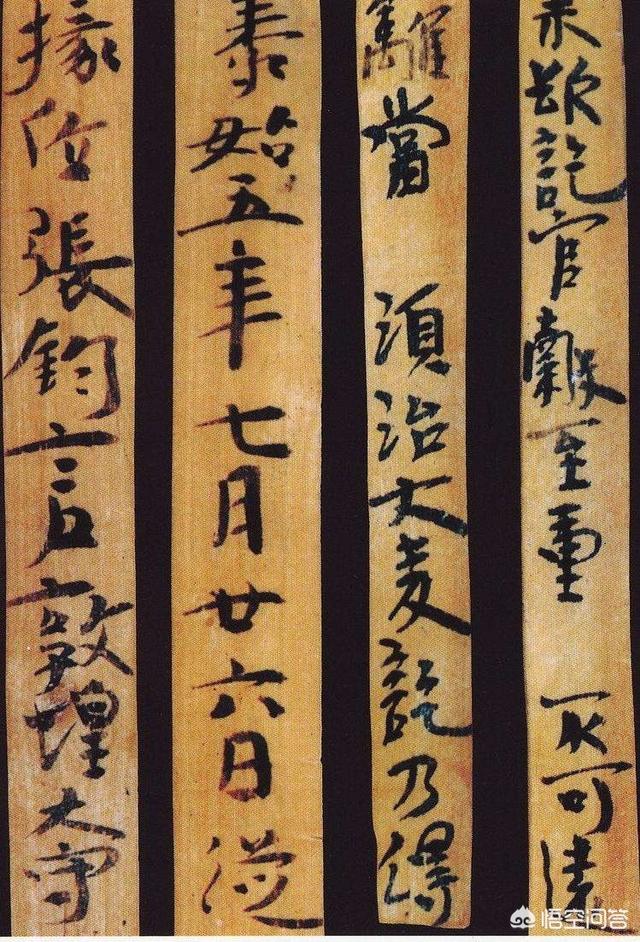 未欲訖官穀至重 不可遠
離當 須治大麥訖乃得
泰始五年七月廿六日從
掾位張鈞言敦煌大守
悟空问答